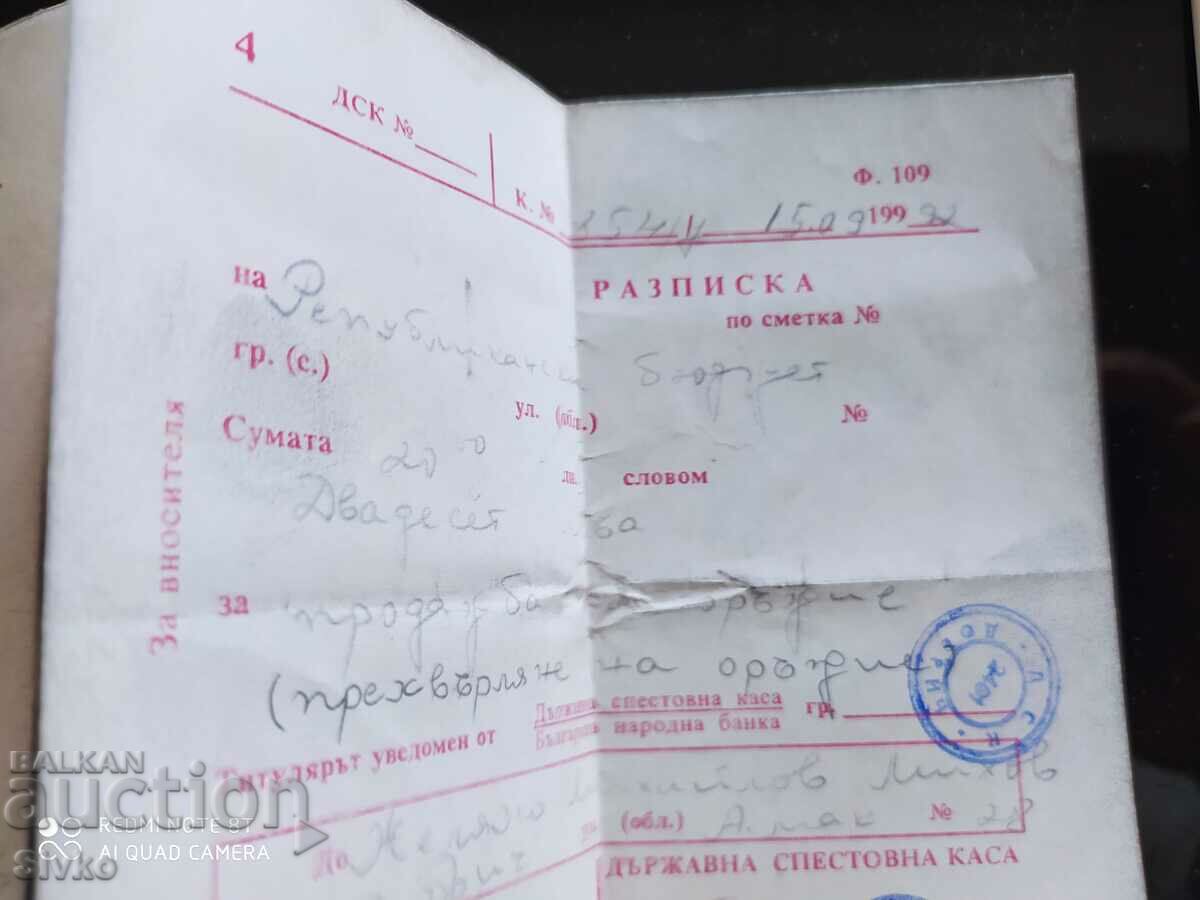 4
ДСК №
К. №
Ф. 109
15.09 199 92
РАЗПИСКА
по сметка №
на Републикански бюджет
гр. (с.)
ул. (обл.) №
Сумата 20
лв. словом
Двадесет лева
За вносителя
за продажба на оръжие
(прехвърляне на оръжие)
Държавна спестовна каса
Българска народна банка
гр.
Титулярът уведомен от
До Желязко Михайлов Михов
(обл.) № 28
ДЪРЖАВНА СПЕСТОВНА КАСА
ДСК
BALKAN
auction
REDMI NOTE 8T
AI QUAD CAMERA
Sivko